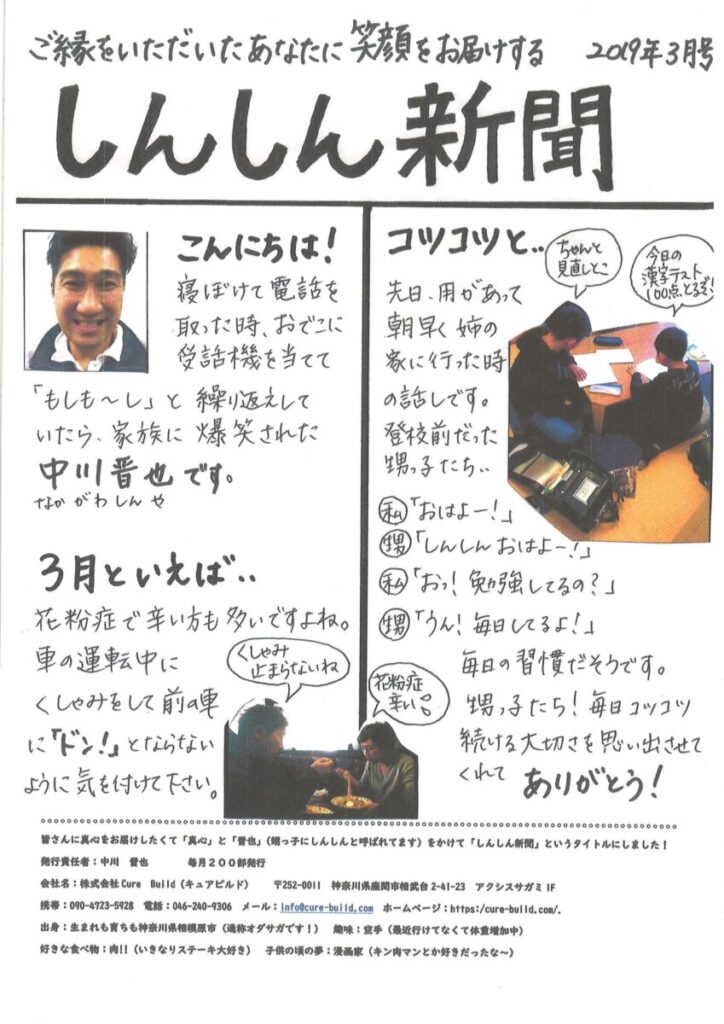 ご縁をいただいたあなたに笑顔をお届けする 2019年3月号
しんしん新聞
こんにちは!
寝ぼけて電話を
取った時、おでこに
受話機を当てて
「もしも〜し」と繰り返えして
いたら、家族に爆笑された
中川晋也です。
なか がわ しん や
3月といえば‥
花粉症で辛い方も多いですよね。
車の運転中に
くしゃみをして前の車
に「ドン!」とならない
ように気を付けて下さい。
くしゃみ
止まらないね
花粉症
辛い
コツコツと‥
ちゃんと
見直しとこ
今日の
漢字テスト
100点とるぞ!
先日、用があって
朝早く姉の
家に行った時
の話しです。
登校前だった
甥っ子たち‥
私「おはよー!」
甥「しんしんおはよー!」
私「おっ!勉強してるの?」
甥「うん!毎日してるよ!」
毎日の習慣だそうです。
甥っ子たち!毎日コツコツ
続ける大切さを思い出させて
くれて ありがとう!
皆さんに真心をお届けしたくて「真心」と「晋也」(甥っ子にしんしんと呼ばれてます)をかけて「しんしん新聞」というタイトルにしました!
発行責任者:中川 晋也 毎月200部発行
会社名:株式会社Cure Build(キュアビルド) 〒252-0011 神奈川県座間市相武台2-41-23 アクシスサガミ1F
携帯:090-4723-5928 電話:046-240-9306 メール:info@cure-build.com ホームページ:https:/cure-build.com/.
出身:生まれも育ちも神奈川県相模原市(通称オダサガです!) 趣味:空手(最近行けてなくて体重増加中)
好きな食べ物:肉!!(いきなりステーキ大好き) 子供の頃の夢:漫画家(キン肉マンとか好きだったな~)